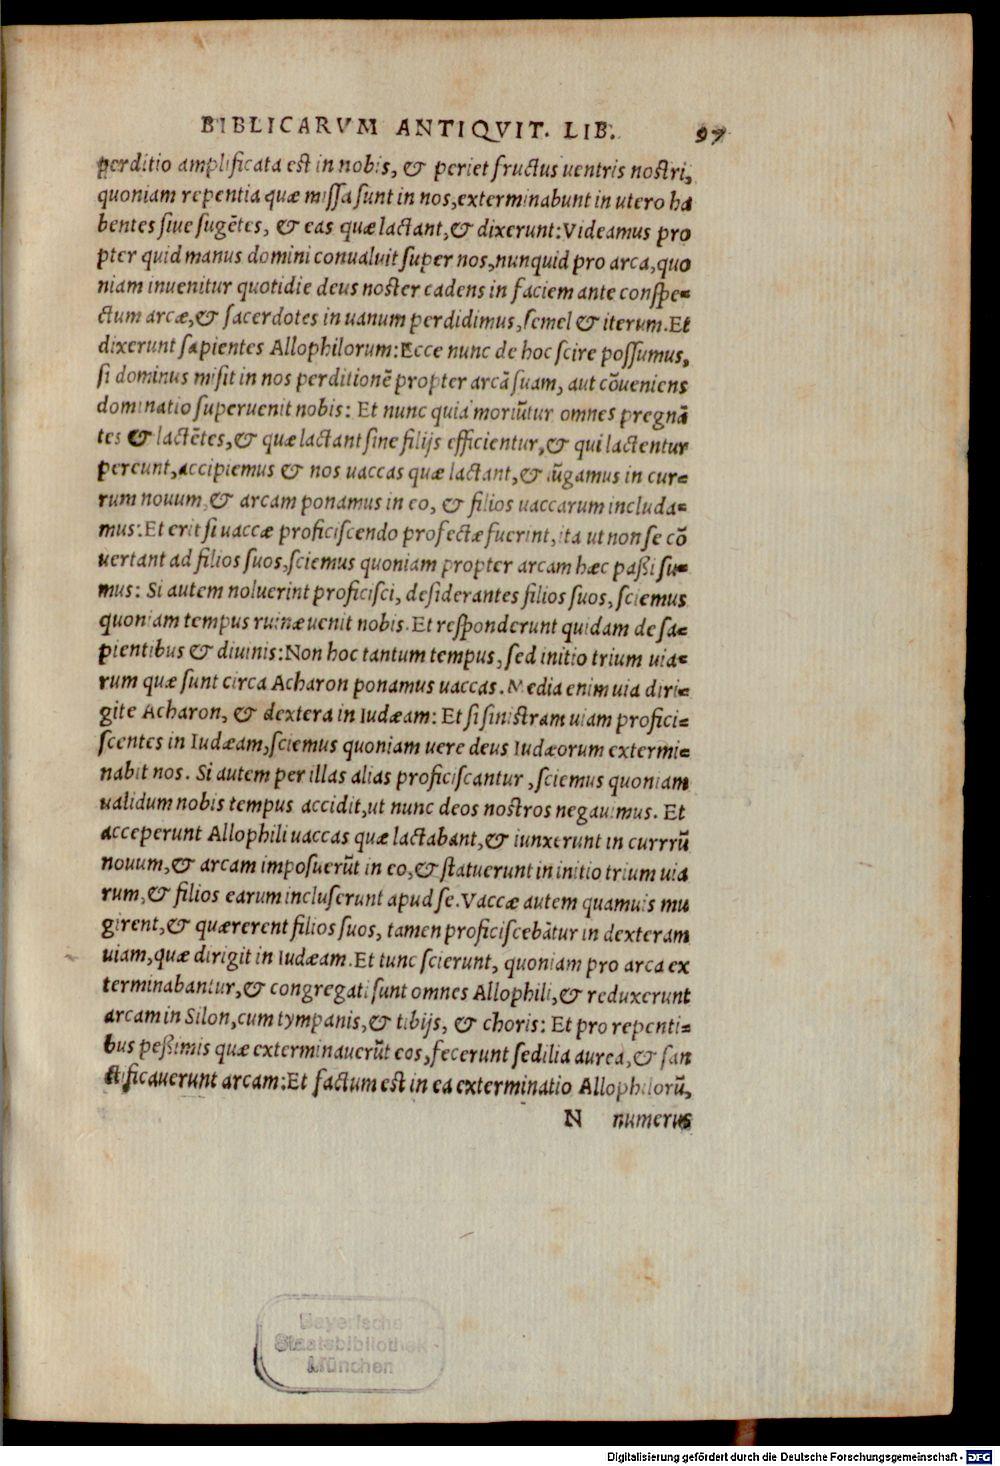 BIBLICARVM ANTIQVIT. LIB. 97
perditio amplificata est in nobis, & periet fructus uentris nostri,
quoniam repentia quæ missa sunt in nos, exterminabunt in utero ha
bentes siue sugẽtes, & eas quæ lactant, & dixerunt: Videamus pro
pter quid manus domini conualuit super nos, nunquid pro arca, quo
niam inuenitur quotidie deus noster cadens in faciem ante conspe-
ctum arcæ, & sacerdotes in uanum perdidimus, semel & iterum. Et
dixerunt sapientes Allophilorum: Ecce nunc de hoc scire possumus,
si dominus misit in nos perditionẽ propter arcã suam, aut cõueniens
dominatio superuenit nobis: Et nunc quia moriũtur omnes pregnã
tes & lactẽtes, & quæ lactant sine filijs efficientur, & qui lactentur
pereunt, accipiemus & nos uaccas quæ lactant, & iũgamus in cur-
rum nouum, & arcam ponamus in eo, & filios uaccarum includa-
mus: Et erit si uaccæ proficiscendo profectæ fuerint, ita ut non se cõ
uertant ad filios suos, sciemus quoniam propter arcam hæc paßi su-
mus: Si autem noluerint proficisci, desiderantes filios suos, sciemus
quoniam tempus ruinæ uenit nobis. Et responderunt quidam de sa-
pientibus & diuinis: Non hoc tantum tempus, sed initio trium uia-
rum quæ sunt circa Acharon ponamus uaccas. Media enim uia diri-
gite Acharon, & dextera in Iudæam: Et si sinistram uiam profici-
scentes in Iudæam, sciemus quoniam uere deus Iudæorum extermi-
nabit nos. Si autem per illas alias proficiscantur, sciemus quoniam
ualidum nobis tempus accidit, ut nunc deos nostros negauimus. Et
acceperunt Allophili uaccas quæ lactabant, & iunxerunt in currrũ
nouum, & arcam imposuerũt in eo, & statuerunt in initio trium uia
rum, & filios earum incluserunt apud se. Vaccæ autem quamuis mu
girent, & quærerent filios suos, tamen proficiscebãtur in dexteram
uiam, quæ dirigit in Iudæam. Et tunc scierunt, quoniam pro arca ex
terminabantur, & congregati sunt omnes Allophili, & reduxerunt
arcam in Silon, cum tympanis, & tibijs, & choris: Et pro repenti-
bus peßimis quæ exterminauerũt eos, fecerunt sedilia aurea, & san
ctificauerunt arcam: Et factum est in ea exterminatio Allophilorũ,
N numerus
Bayerische
Staatsbibliothek
München
Digitalisierung gefördert durch die Deutsche Forschungsgemeinschaft - DFG